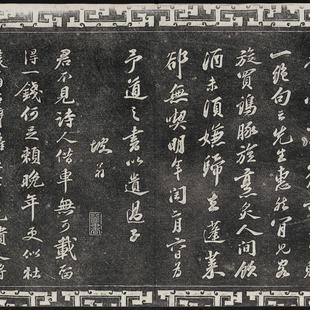 一絶句云先生惠然肯見客
旋買鷄豚旋烹炙人間飲
酒未須嫌歸去蓬萊
却無喫明年閏二月六日為
予道之書以遺過子
坡翁
君不見詩人借車無可載留
得一錢何足賴晚年更似杜